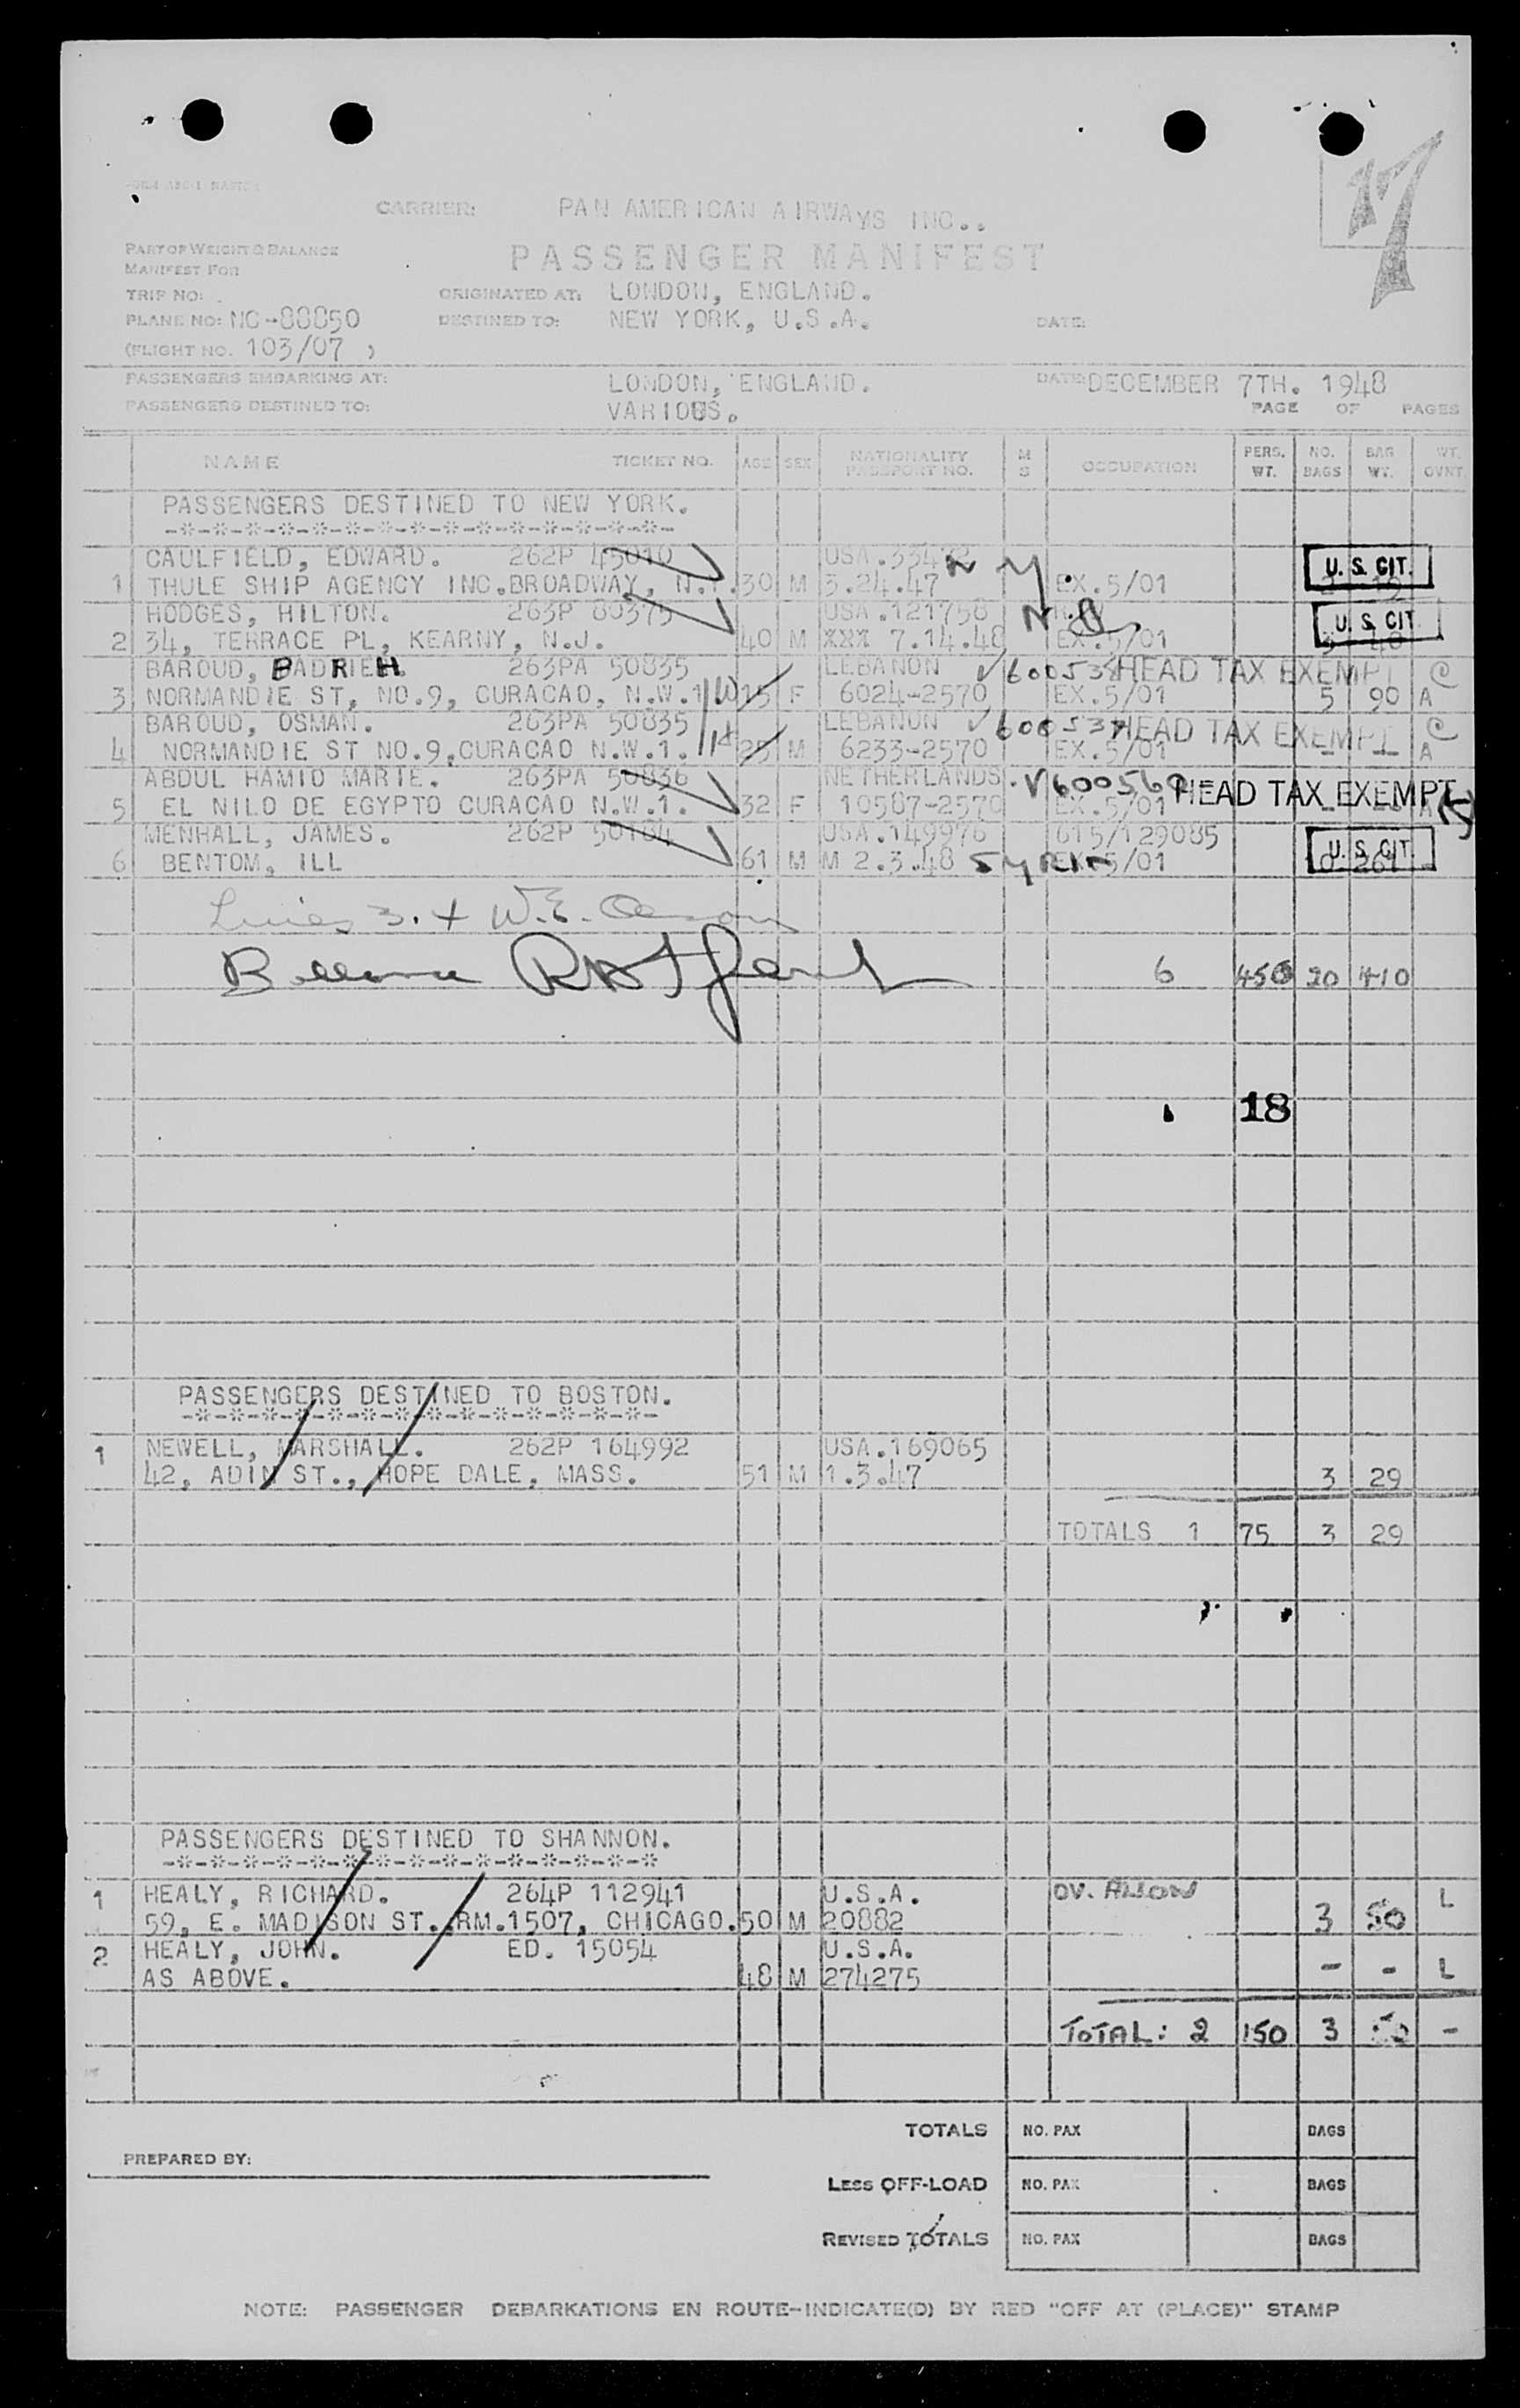 CARRIER: PAN AMERICAN AIRWAYS INC..
PART OF WEIGHT & BALANCE
MANIFEST FOR
PASSENGER MANIFEST
TRIP NO: ORIGINATED AT: LONDON, ENGLAND.
PLANE NO: NC-88850 DESTINED TO: NEW YORK, U.S.A. DATE:
(FLIGHT NO. 103/07 )
PASSENGERS EMBARKING AT: LONDON, ENGLAND. DATE: DECEMBER 7TH. 1948
PASSENGERS DESTINED TO: VARIOUS. PAGE OF PAGES
NAME TICKET NO. AGE SEX NATIONALITY PASSPORT NO. M S OCCUPATION PERS. WT. NO. BAGS BAG WT. WT. OVNT.
PASSENGERS DESTINED TO NEW YORK.
-*-*-*-*-*-*-*-*-*-*-*-*-*-*-*-
CAULFIELD, EDWARD. 262P 45010 N Y. U.S. CIT.
1 THULE SHIP AGENCY INC.BROADWAY, N.Y. 30 M 3.24.47 EX.5/01
HODGES, HILTON. 263P 80375 USA.121758 U.S. CIT.
2 34, TERRACE PL, KEARNY, N.J. 40 M XXX 7.14.48 EX.5/01
BAROUD, BADRIEH 263PA 50835 LEBANON HEAD TAX EXEMPT
3 NORMANDIE ST, NO.9, CURACAO, N.W.1 15 F 6024-2570 EX.5/01 5 90 A
BAROUD, OSMAN. 263PA 50835 LEBANON HEAD TAX EXEMPT
4 NORMANDIE ST NO.9,CURACAO N.W.1. 25 M 6233-2570 EX.5/01 - - A
ABDUL HAMID MARIE. 263PA 50836 NETHERLANDS. V600569 HEAD TAX EXEMPT
5 EL NILO DE EGYPTO CURACAO N.W.1. 32 F 10587-2570 EX.5/01
MENHALL, JAMES. 262P 50184 USA.149976 615/129085 U.S. CIT.
6 BENTOM, ILL 61 M M 2.3.48 Syria EX.5/01
6 450 20 410
18
PASSENGERS DESTINED TO BOSTON.
-*-*-*-*-*-*-*-*-*-*-*-*-*-*-
1 NEWELL, MARSHALL. 262P 164992 USA.169065
42, ADIN ST., HOPE DALE, MASS. 51 M 1.3.47 3 29
TOTALS 1 75 3 29
PASSENGERS DESTINED TO SHANNON.
-*-*-*-*-*-*-*-*-*-*-*-*-*-*-*
1 HEALY, RICHARD. 264P 112941 U.S.A. OV. ALLOW L
59, E. MADISON ST. RM.1507, CHICAGO. 50 M 20882 3 50
2 HEALY, JOHN. ED. 15054 U.S.A.
AS ABOVE. 48 M 274275 - - L
TOTAL: 2 150 3 50 -
TOTALS NO. PAX BAGS
PREPARED BY:
LESS OFF-LOAD NO. PAX BAGS
REVISED TOTALS NO. PAX BAGS
NOTE: PASSENGER DEBARKATIONS EN ROUTE-INDICATE(D) BY RED "OFF AT (PLACE)" STAMP